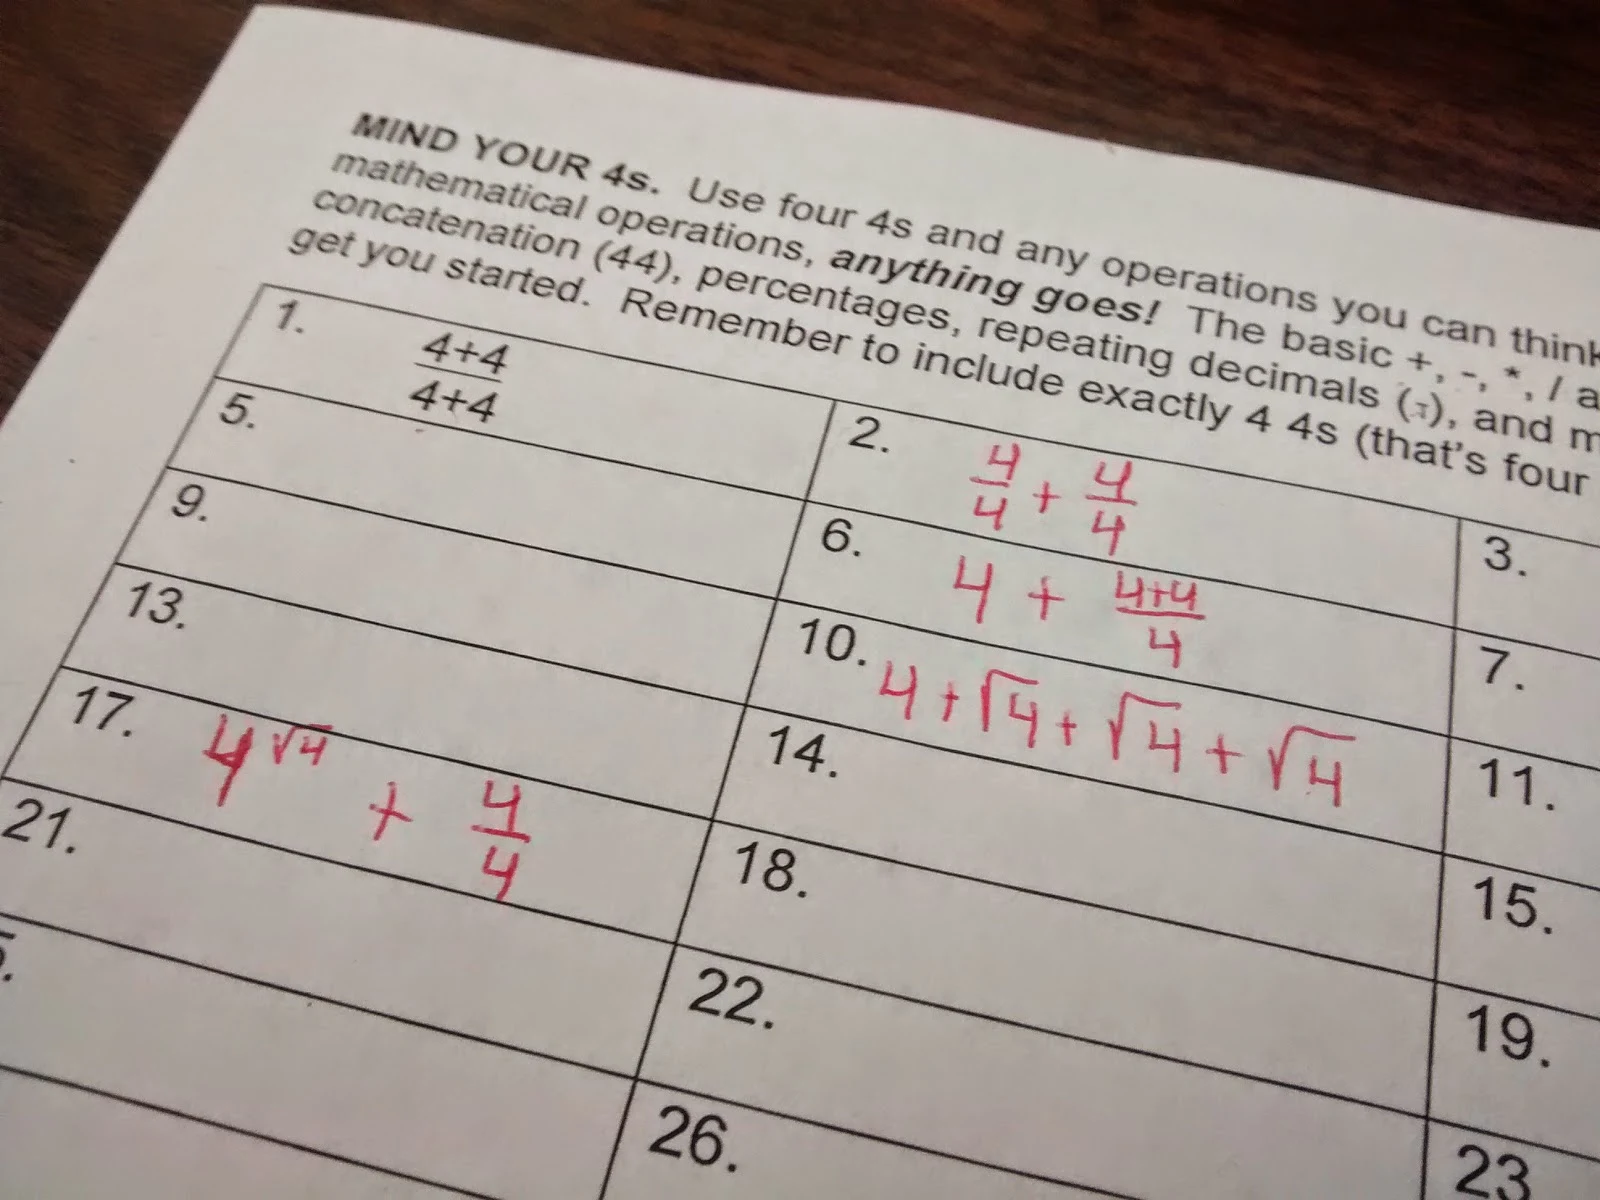 MIND YOUR 4s. Use four 4s and any operations you can think
mathematical operations, anything goes! The basic +, -, *, / a
concatenation (44), percentages, repeating decimals (.), and m
get you started. Remember to include exactly 4 4s (that's four
1. 4+4
4+4
2. 4/4 + 4/4
3.
5.
6. 4 + (4+4)/4
7.
9.
10. 4 + √4 + √4 + √4
11.
13.
14.
15.
17. 4^√4 + 4/4
18.
19.
21.
22.
23
5.
26.